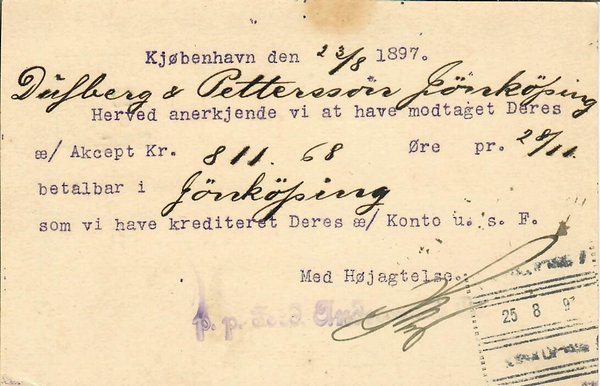 Kjøbenhavn den 23/8 1897.
Dufberg & Pettersson Jönköping
Herved anerkjende vi at have modtaget Deres
æ/ Akcept Kr. 811.68 Øre pr. 28/11.
betalbar i Jönköping
som vi have krediteret Deres æ/ Konto u. s. F.
Med Højagtelse.
p. p.
25 8 97